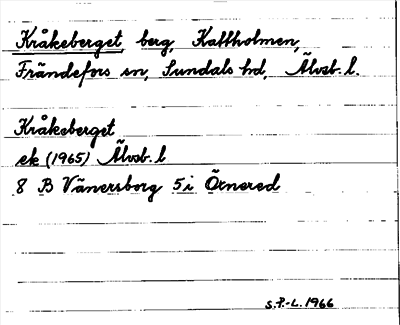 Kråkeberget, berg, Kattholmen,
Frändefors sn, Sundals hd, Älvsb. l.
Kråkeberget
ek (1965) Älvsb. l
8 B Vänersborg 5 i Örnered
S.P.-L. 1966